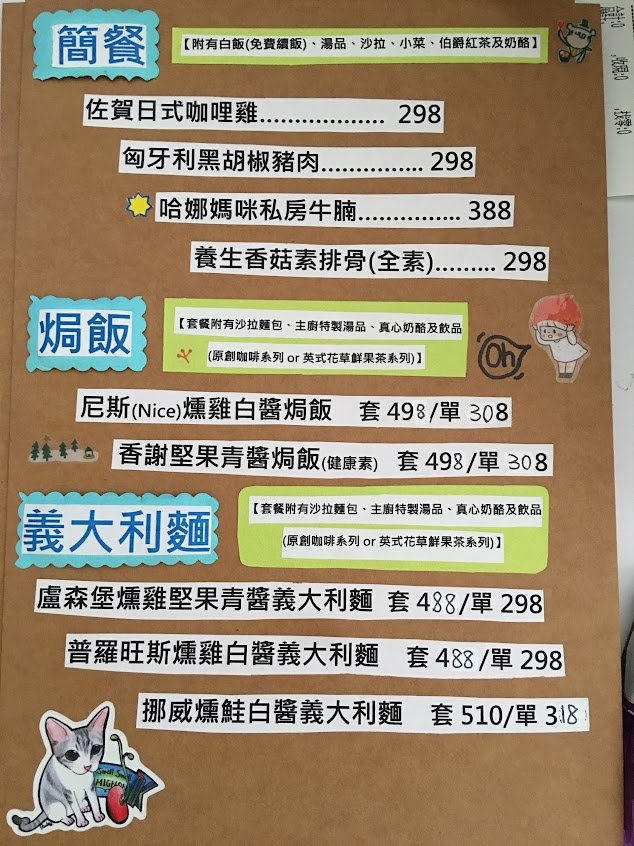 簡餐
【附有白飯(免費續飯)、湯品、沙拉、小菜、伯爵紅茶及奶酪】
佐賀日式咖哩雞.................. 298
匈牙利黑胡椒豬肉............... 298
哈娜媽咪私房牛腩............... 388
養生香菇素排骨(全素)......... 298
焗飯
【套餐附有沙拉麵包、主廚特製湯品、真心奶酪及飲品
(原創咖啡系列 or 英式花草鮮果茶系列)】
Oh!
尼斯(Nice)燻雞白醬焗飯 套 498/單 308
香謝堅果青醬焗飯(健康素) 套 498/單 308
義大利麵
【套餐附有沙拉麵包、主廚特製湯品、真心奶酪及飲品
(原創咖啡系列 or 英式花草鮮果茶系列)】
盧森堡燻雞堅果青醬義大利麵 套 488/單 298
普羅旺斯燻雞白醬義大利麵 套 488/單 298
挪威燻鮭白醬義大利麵 套 510/單 318